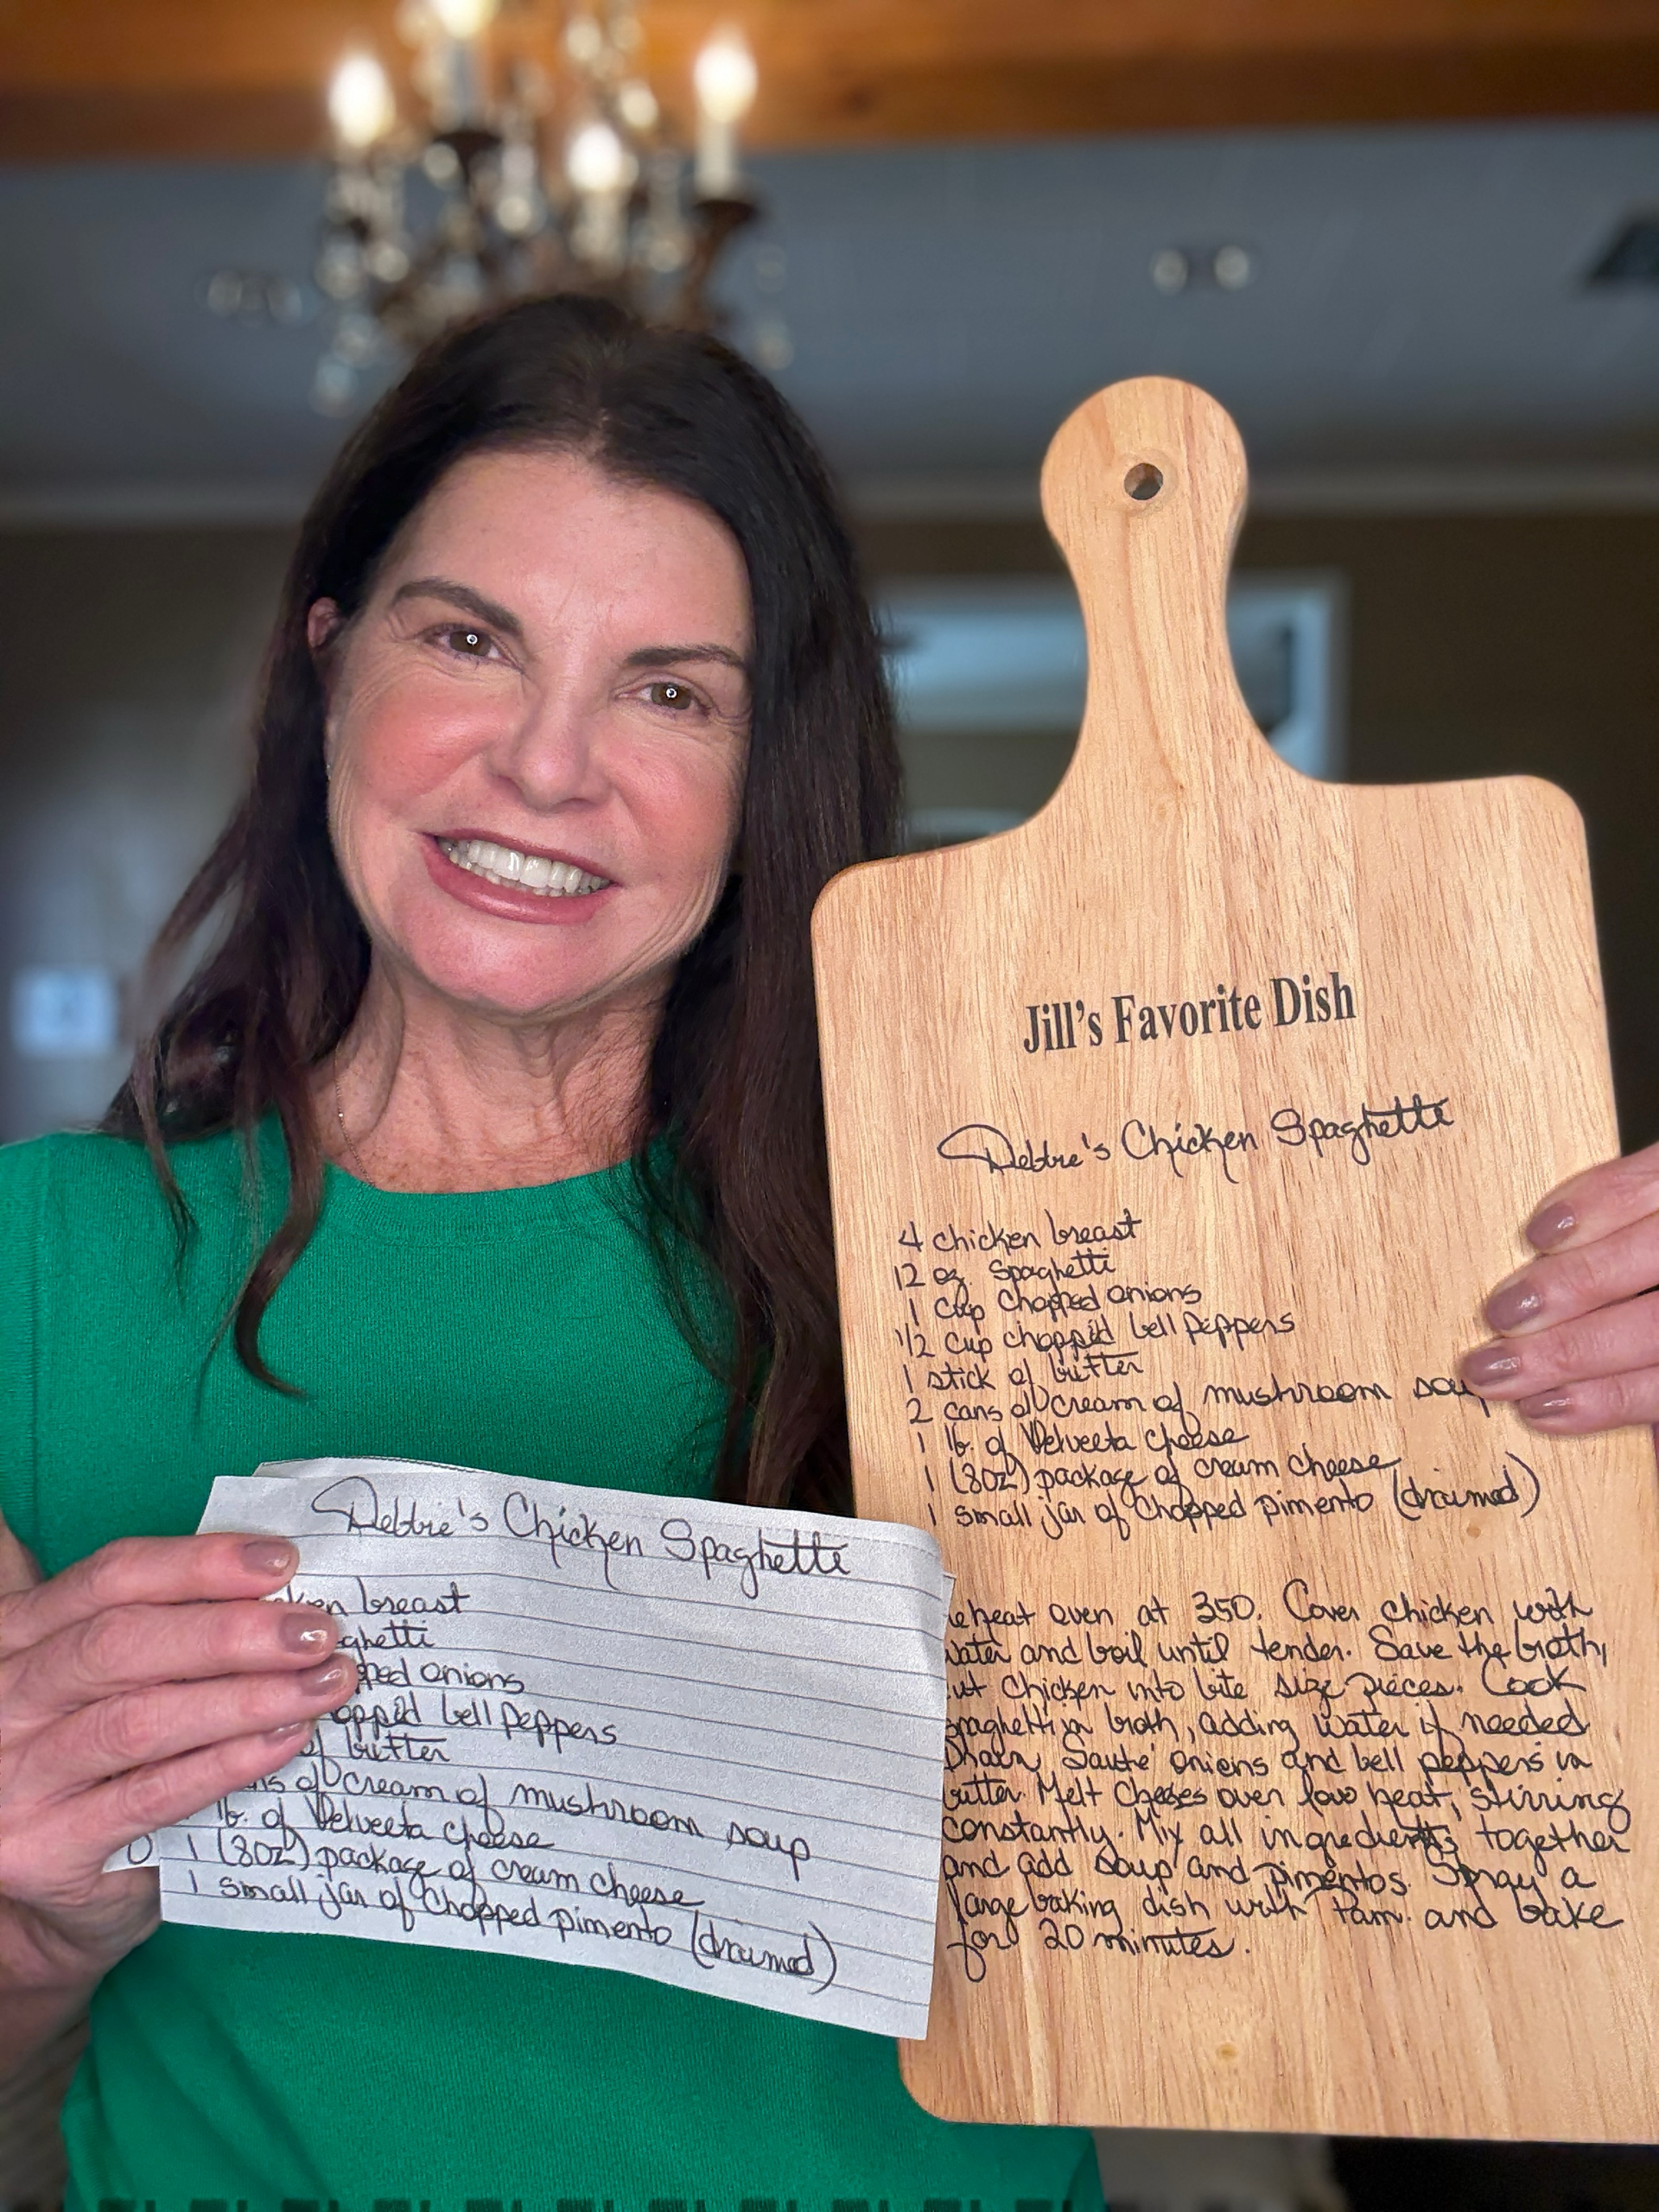 Jill's Favorite Dish
Debbie's Chicken Spaghetti
4 chicken breast
12 oz. Spaghetti
1 cup chopped onions
1/2 cup chopped bell peppers
1 stick of butter
2 cans of cream of mushroom sou
1 lb. of Velveeta cheese
1 (8oz) package of cream cheese
1 small jar of chopped pimento (drained)
eheat oven at 350. Cover chicken with
water and boil until tender. Save the broth,
ut chicken into bite size pieces. Cook
spaghetti in broth, adding water if needed
Drain. Sauté onions and bell peppers in
butter. Melt cheeses over low heat, stirring
constantly. Mix all ingredients together
and add soup and pimentos. Spray a
large baking dish with Pam. and bake
for 20 minutes.
Debbie's Chicken Spaghetti
ken breast
ghetti
pped onions
opped bell peppers
of butter
ns of cream of mushroom soup
lb. of Velveeta cheese
1 (8oz) package of cream cheese
1 small jar of chopped pimento (drained)